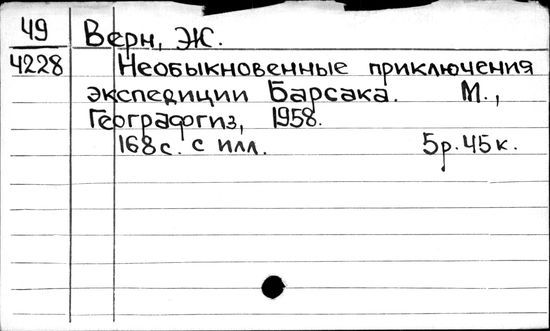 49 Верн, Ж.
4228 Необыкновенные приключения
экспедиции Барсака. М.,
Географгиз, 1958.
168с. с илл. 5р.45к.